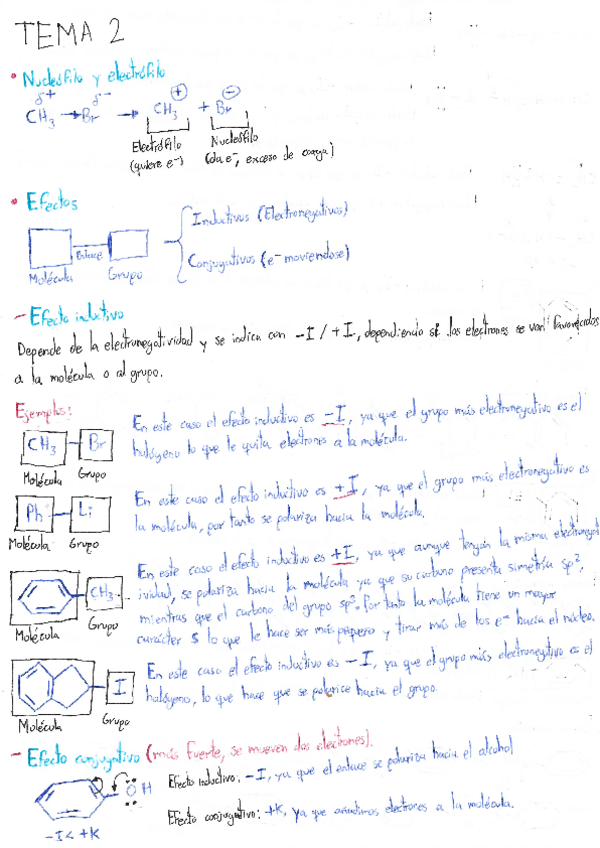 TEMA 2
• Nucleófilo y electrófilo
δ+ δ-
CH3 → Br → CH3 + + Br -
Electrófilo Nucleófilo
(quiere e-) (da e-, exceso de carga)
• Efectos
Inductivos (Electronegativos)
Enlace
Molécula Grupo
Conjugativos (e- moviendose)
- Efecto inductivo
Depende de la electronegatividad y se indica con -I / +I, dependiendo si los electrones se van favorecidos
a la molécula o al grupo.
Ejemplos:
CH3 - Br
Molécula Grupo
En este caso el efecto inductivo es -I, ya que el grupo más electronegativo es el
halógeno lo que le quita electrones a la molécula.
Ph - Li
Molécula Grupo
En este caso el efecto inductivo es +I, ya que el grupo más electronegativo es
la molécula, por tanto se polariza hacia la molécula.
CH3
Molécula Grupo
En este caso el efecto inductivo es +I, ya que aunque tengan la misma electronegat
ividad, se polariza hacia la molécula ya que su carbono presenta simetría sp2,
mientras que el carbono del grupo sp3. Por tanto la molécula tiene un mayor
carácter s lo que le hace ser más pequero y tirar más de los e- hacia el núcleo.
I
Molécula Grupo
En este caso el efecto inductivo es -I, ya que el grupo más electronegativo es el
halógeno, lo que hace que se polarice hacia el grupo.
- Efecto conjugativo (más fuerte, se mueven dos electrones).
OH
Efecto inductivo: -I, ya que el enlace se polariza hacia el alcohol
Efecto conjugativo: +K, ya que añadimos electrones a la molécula.
-I < +K